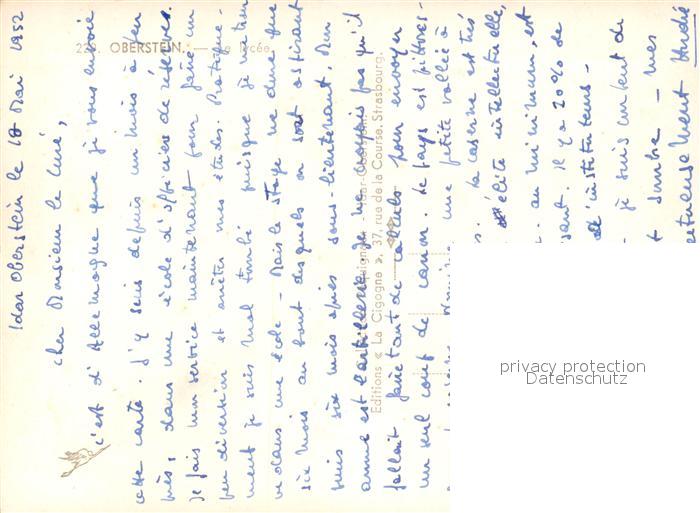 Idar Oberstein le 18 Mai 1952
Cher Monsieur le Curé,
C'est d'Allemagne que je vous envoie
cette carte. J'y suis depuis un mois à peu
près, dans une école d'officiers de réserves.
Je fais mon service maintenant pour faire un
peu diversion et arrêter mes études. Pratique-
ment je suis mal tombé puisque je me trou
ve dans une école - Mais le stage ne dure que
six mois au bout desquels on sort aspirant
puis six mois après sous-lieutenant. Mon
arme est l'artillerie. Je ne croyais pas qu'il
fallait faire tant de calculs pour envoyer
un seul coup de canon. Le pays est pittores-
une petite vallée à
s. La caserne est très
élite intellectuelle,
au minimum, est
sant. Il y a 20% de
d'instituteurs -
je suis content de
t sombre - mes
ectueusement André
226. OBERSTEIN. — Le lycée.
Editions « La Cigogne », 37, rue de la Course, Strasbourg.
privacy protection
Datenschutz